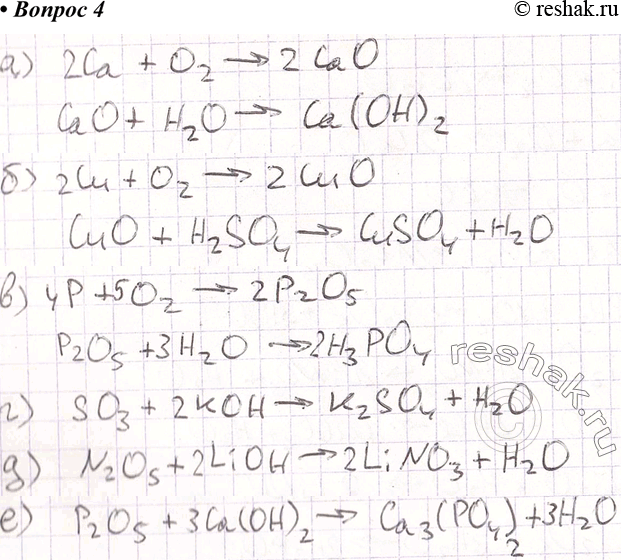 • Вопрос 4
© reshak.ru
а) 2Ca + O₂ → 2CaO
CaO + H₂O → Ca(OH)₂
б) 2Cu + O₂ → 2CuO
CuO + H₂SO₄ → CuSO₄ + H₂O
в) 4P + 5O₂ → 2P₂O₅
P₂O₅ + 3H₂O → 2H₃PO₄
reshak.ru
©
г) SO₃ + 2KOH → K₂SO₄ + H₂O
д) N₂O₅ + 2LiOH → 2LiNO₃ + H₂O
е) P₂O₅ + 3Ca(OH)₂ → Ca₃(PO₄)₂ + 3H₂O